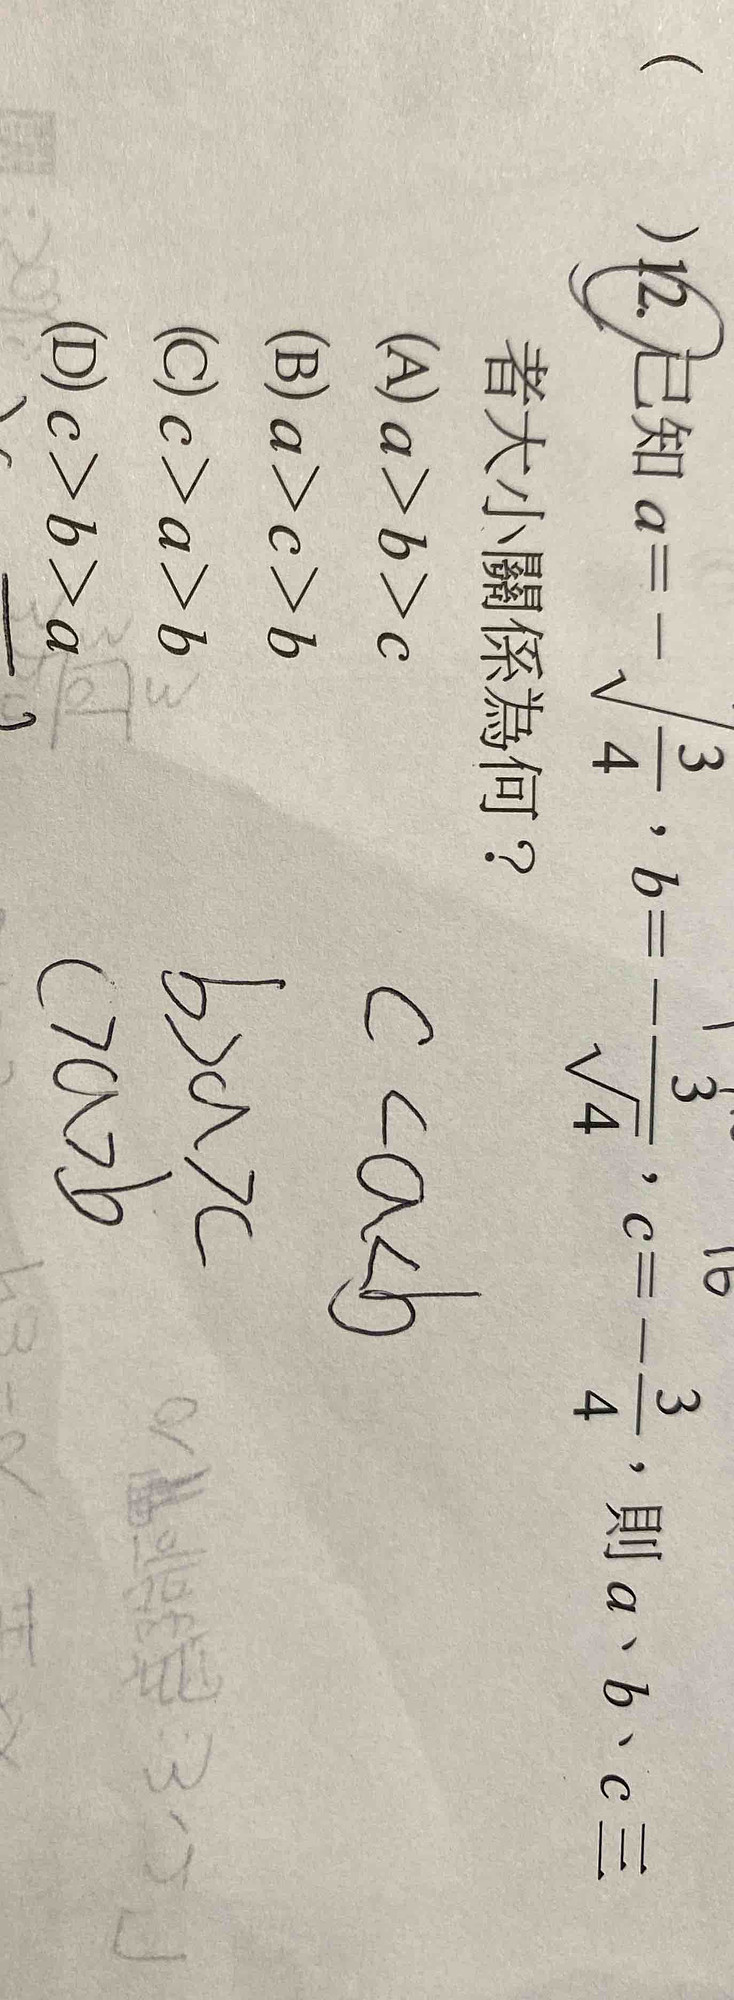 ( )12. 已知 a=-√(3/4)，b=-3/√4，c=-3/4，則 a、b、c 三
者大小關係為何？
(A) a>b>c
(B) a>c>b
(C) c>a>b
(D) c>b>a
c<a<b
b>a>c
c>a>b
16